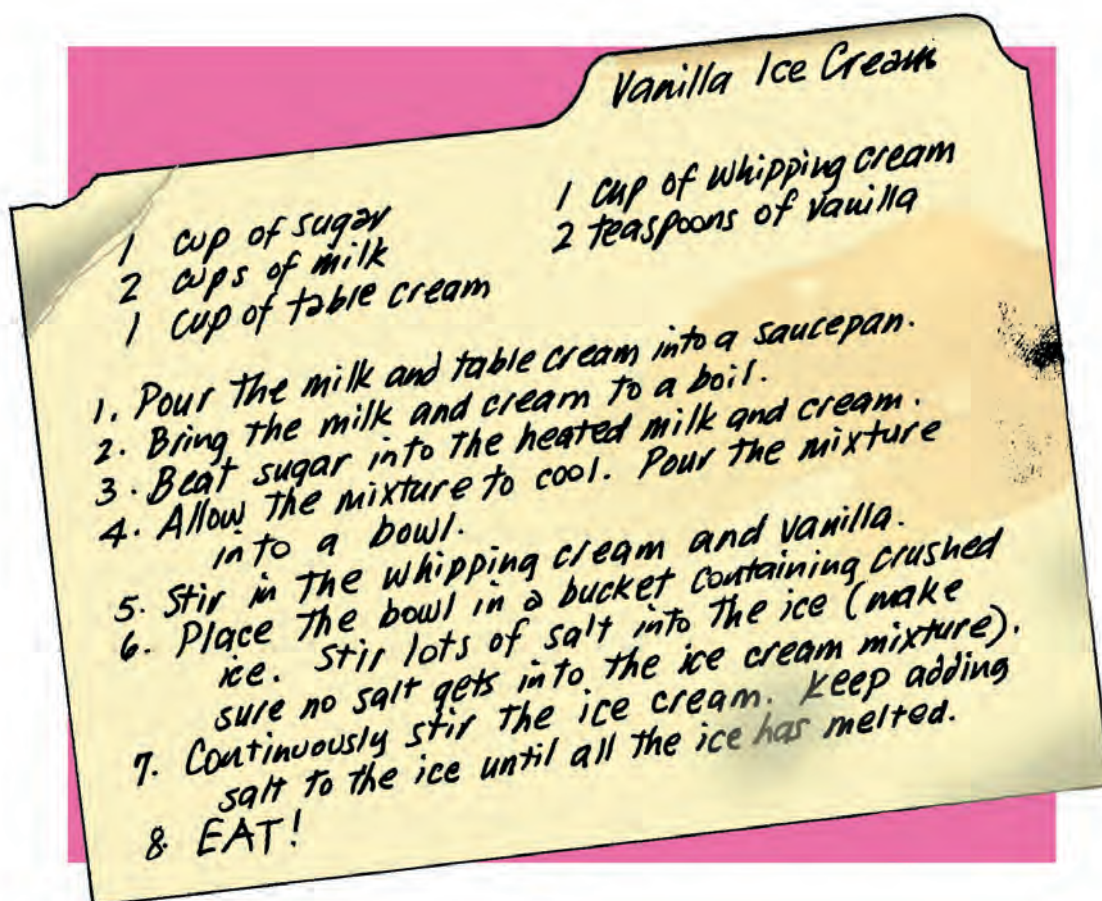 Vanilla Ice Cream
1 cup of sugar
2 cups of milk
1 cup of table cream
1 cup of whipping cream
2 teaspoons of vanilla
1. Pour the milk and table cream into a saucepan.
2. Bring the milk and cream to a boil.
3. Beat sugar into the heated milk and cream.
4. Allow the mixture to cool. Pour the mixture
into a bowl.
5. Stir in the whipping cream and vanilla.
6. Place the bowl in a bucket containing crushed
ice. Stir lots of salt into the ice (make
sure no salt gets into the ice cream mixture).
7. Continuously stir the ice cream. Keep adding
salt to the ice until all the ice has melted.
8. EAT!